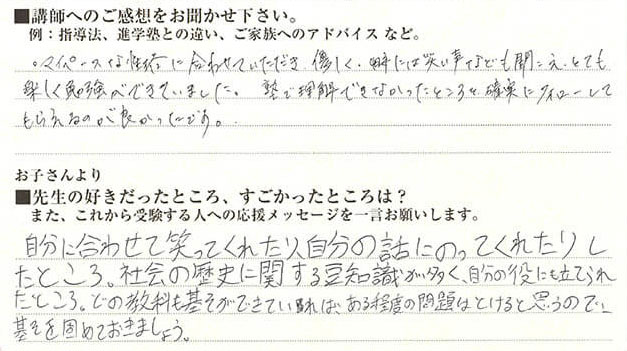 ■講師へのご感想をお聞かせ下さい。
例：指導法、進学塾との違い、ご家族へのアドバイス など。
・マイペースな性格に合わせていただき、優しく、時には笑い事なども聞こえ、とても
楽しく勉強ができていました。 塾で理解できなかったところを、確実にフォローして
もらえるのが良かったです。
お子さんより
■先生の好きだったところ、すごかったところは？
また、これから受験する人への応援メッセージを一言お願いします。
自分に合わせて笑ってくれたり、自分の話にのってくれたりし
たところ。社会の歴史に関する豆知識が多く、自分の役にも立てられ
たところ。どの教科も基そができていれば、ある程度の問題はとけると思うので、
基そを固めておきましょう。